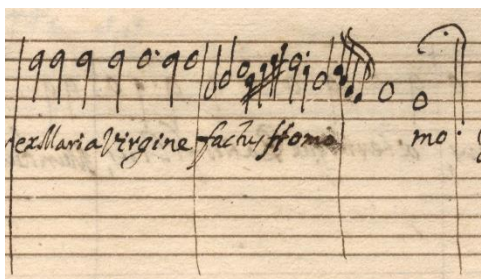 ex Maria Virgine factus homo mo.